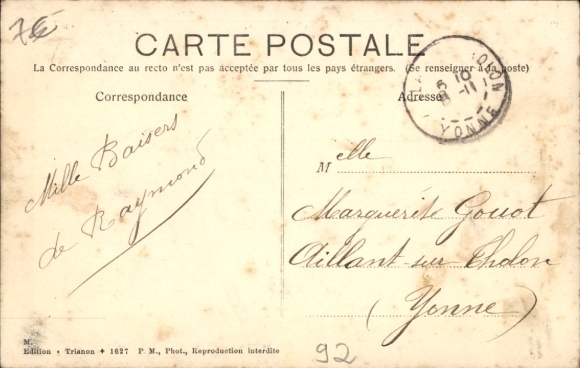 7€
CARTE POSTALE
La Correspondance au recto n'est pas acceptée par tous les pays étrangers. (Se renseigner à la poste)
Correspondance
Adresse
YONNE
Mille Baisers
de Raymond
Melle
Marguerite Gouot
Aillant sur Tholon
(Yonne)
M.
Edition - Trianon ✦ 1627 P. M., Phot., Reproduction interdite
92